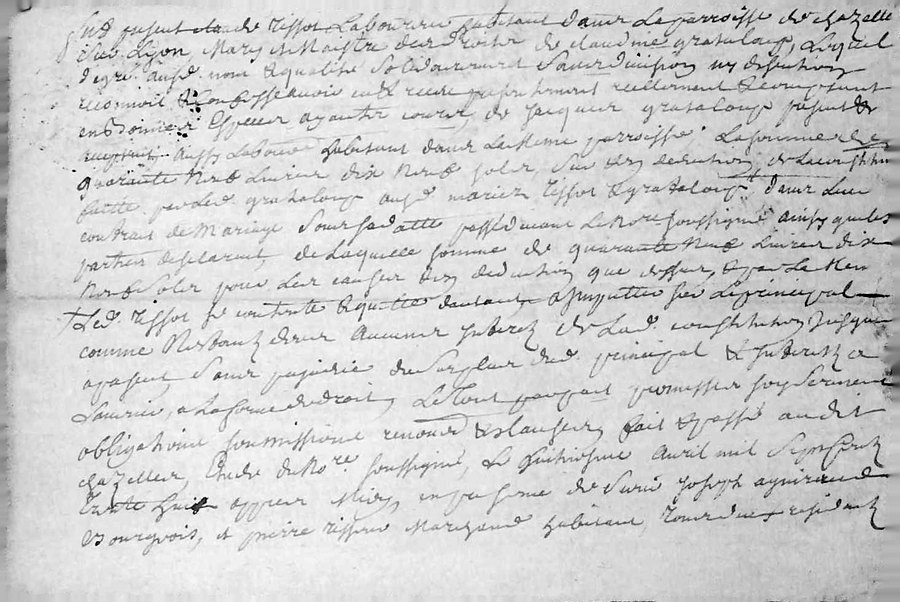 fut present claude Tissot Laboureur habitant dans La parroisse de chazelle
sur Lyon Mary et Maistre des droits de claudine grataloup, Lequel
degré audt nom et qualité solidairement sans division ny discution
reconnoit et confesse avoir eu et receu presentement reellement et comptant
en bonnes Especes ayantes cours, de Jacques grataloup present et
acceptant aussy Laboureur habitant dans La meme parroisse La somme de
quarante Neuf Livres dix Neuf sols, en deduction de La constitution
faitte par Led. grataloup aud. mariez Tissot et grataloup dans Leur
contrat de Mariage sous sa datte passé devant Le Nore soussigné ainsy que les
parties desclarent, de Laquelle somme de quarante Neuf Livres dix
Neuf sols pour Les causes en deduction que dessus, et par Le Meme
Led. Tissot se contente et quitte dautant, a imputter sur Le principal
comme Restant deub aucuns interetz de Lad. constitution Jusques
a present, sans prejudice du surplus dud. principal et interetz a
Lavenir, a La forme de droit, Le tout par foit promesses foy serment
obligations soumissions renoncé et clauses, fait et passé audit
chazelles, Etude du Nore soussigné, Le huitiesme avril mil sept centz
Trente huit appres Midy, en presence de Sieur Joseph
Bourgeois, et pierre Marchand habitant, tous deux residentz